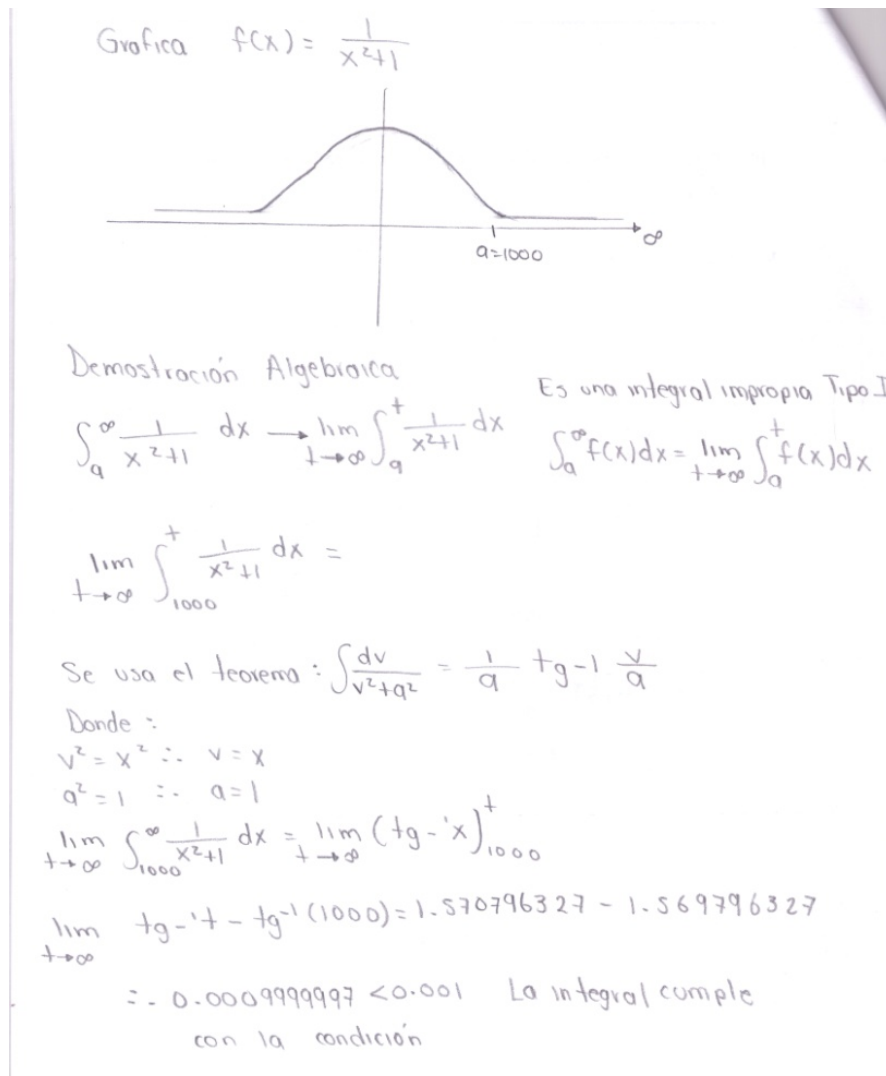 Grafica f(x) = 1/(x²+1)
∞
a=1000
Demostración Algebraica
Es una integral impropia Tipo I
∫ₐ^∞ 1/(x²+1) dx → lim t→∞ ∫ₐ^t 1/(x²+1) dx
∫ₐ^∞ f(x)dx = lim t→∞ ∫ₐ^t f(x)dx
lim t→∞ ∫₁₀₀₀^t 1/(x²+1) dx =
Se usa el teorema : ∫ dv/(v²+a²) = 1/a tg-1 v/a
Donde :
v² = x² ∴ v = x
a² = 1 ∴ a = 1
lim t→∞ ∫₁₀₀₀^∞ 1/(x²+1) dx = lim t→∞ (tg-¹x)₁₀₀₀^t
lim t→∞ tg-¹t - tg⁻¹(1000) = 1.570796327 - 1.569796327
∴ 0.0009999997 < 0.001 La integral cumple
con la condición